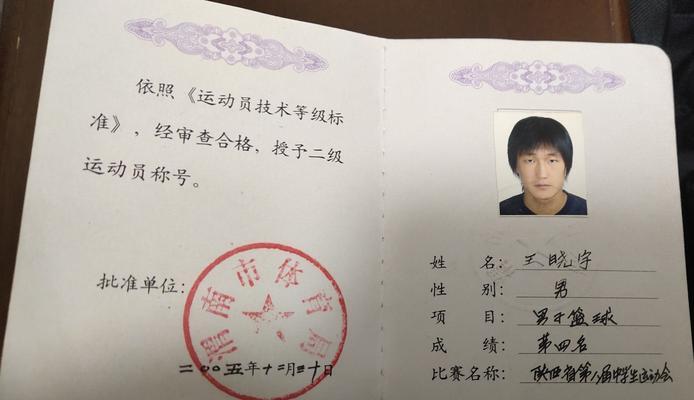 依照《运动员技术等级标
准》，经审查合格，授予二级
运动员称号。
批准单位：
渭南市体育局
二00五年十二月三十日
姓 名：王晓宇
性 别：男
项 目：男子篮球
成 绩：第四名
比赛名称：陕西省第八届中学生运动会